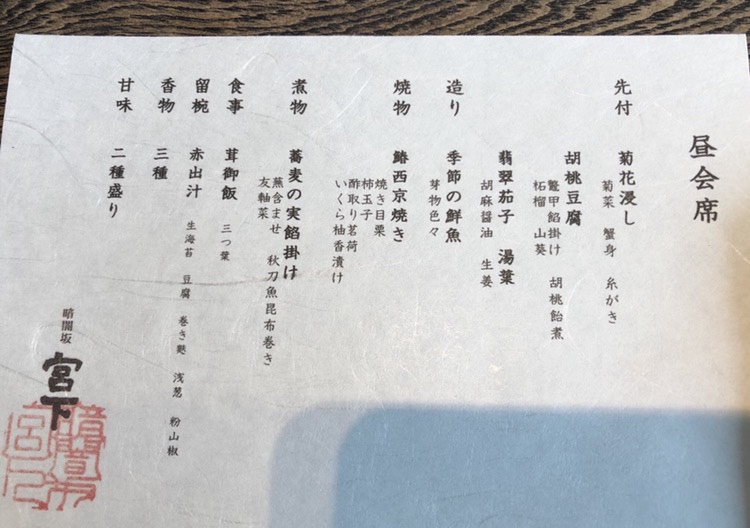 昼会席
先付 菊花浸し
菊菜 蟹身 糸がき
胡桃豆腐
鼈甲餡掛け 胡桃飴煮
柘榴 山葵
翡翠茄子 湯葉
胡麻醤油 生姜
造り 季節の鮮魚
芽物色々
焼物 鰆西京焼き
焼き目栗
柿玉子
酢取り茗荷
いくら柚香漬け
煮物 蕎麦の実餡掛け
蕪含ませ 秋刀魚昆布巻き
友軸菜
食事 茸御飯 三つ葉
留椀 赤出汁 生海苔 豆腐 巻き麩 浅葱 粉山椒
香物 三種
甘味 二種盛り
暗闇坂
宮下